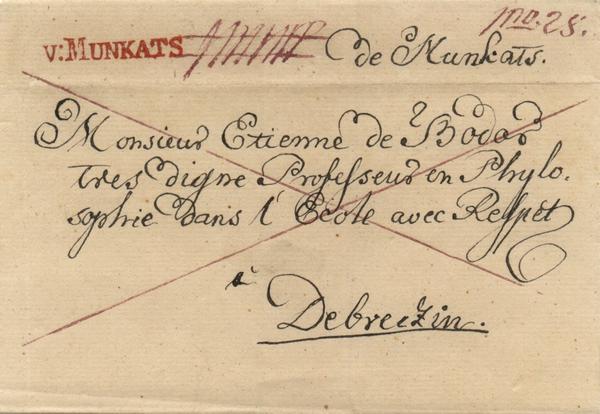 v:MUNKATS de Munkats.
Monsieur Etienne de Bodor
tres digne Professeur en Phylo-
sophie dans l'École avec Respet
à
Debreczin.